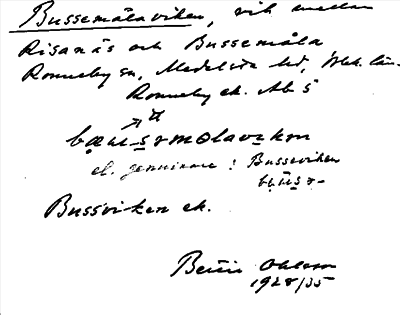 Bussemålaviken, vik mellan
Risanäs och Bussemåla
Ronneby sn, Medelsta hd, Blek. län.
Ronneby ek. Ab 5
el. genuinare : Busseviken
Bussviken ek.
Bertil Ohlsson
1928/35